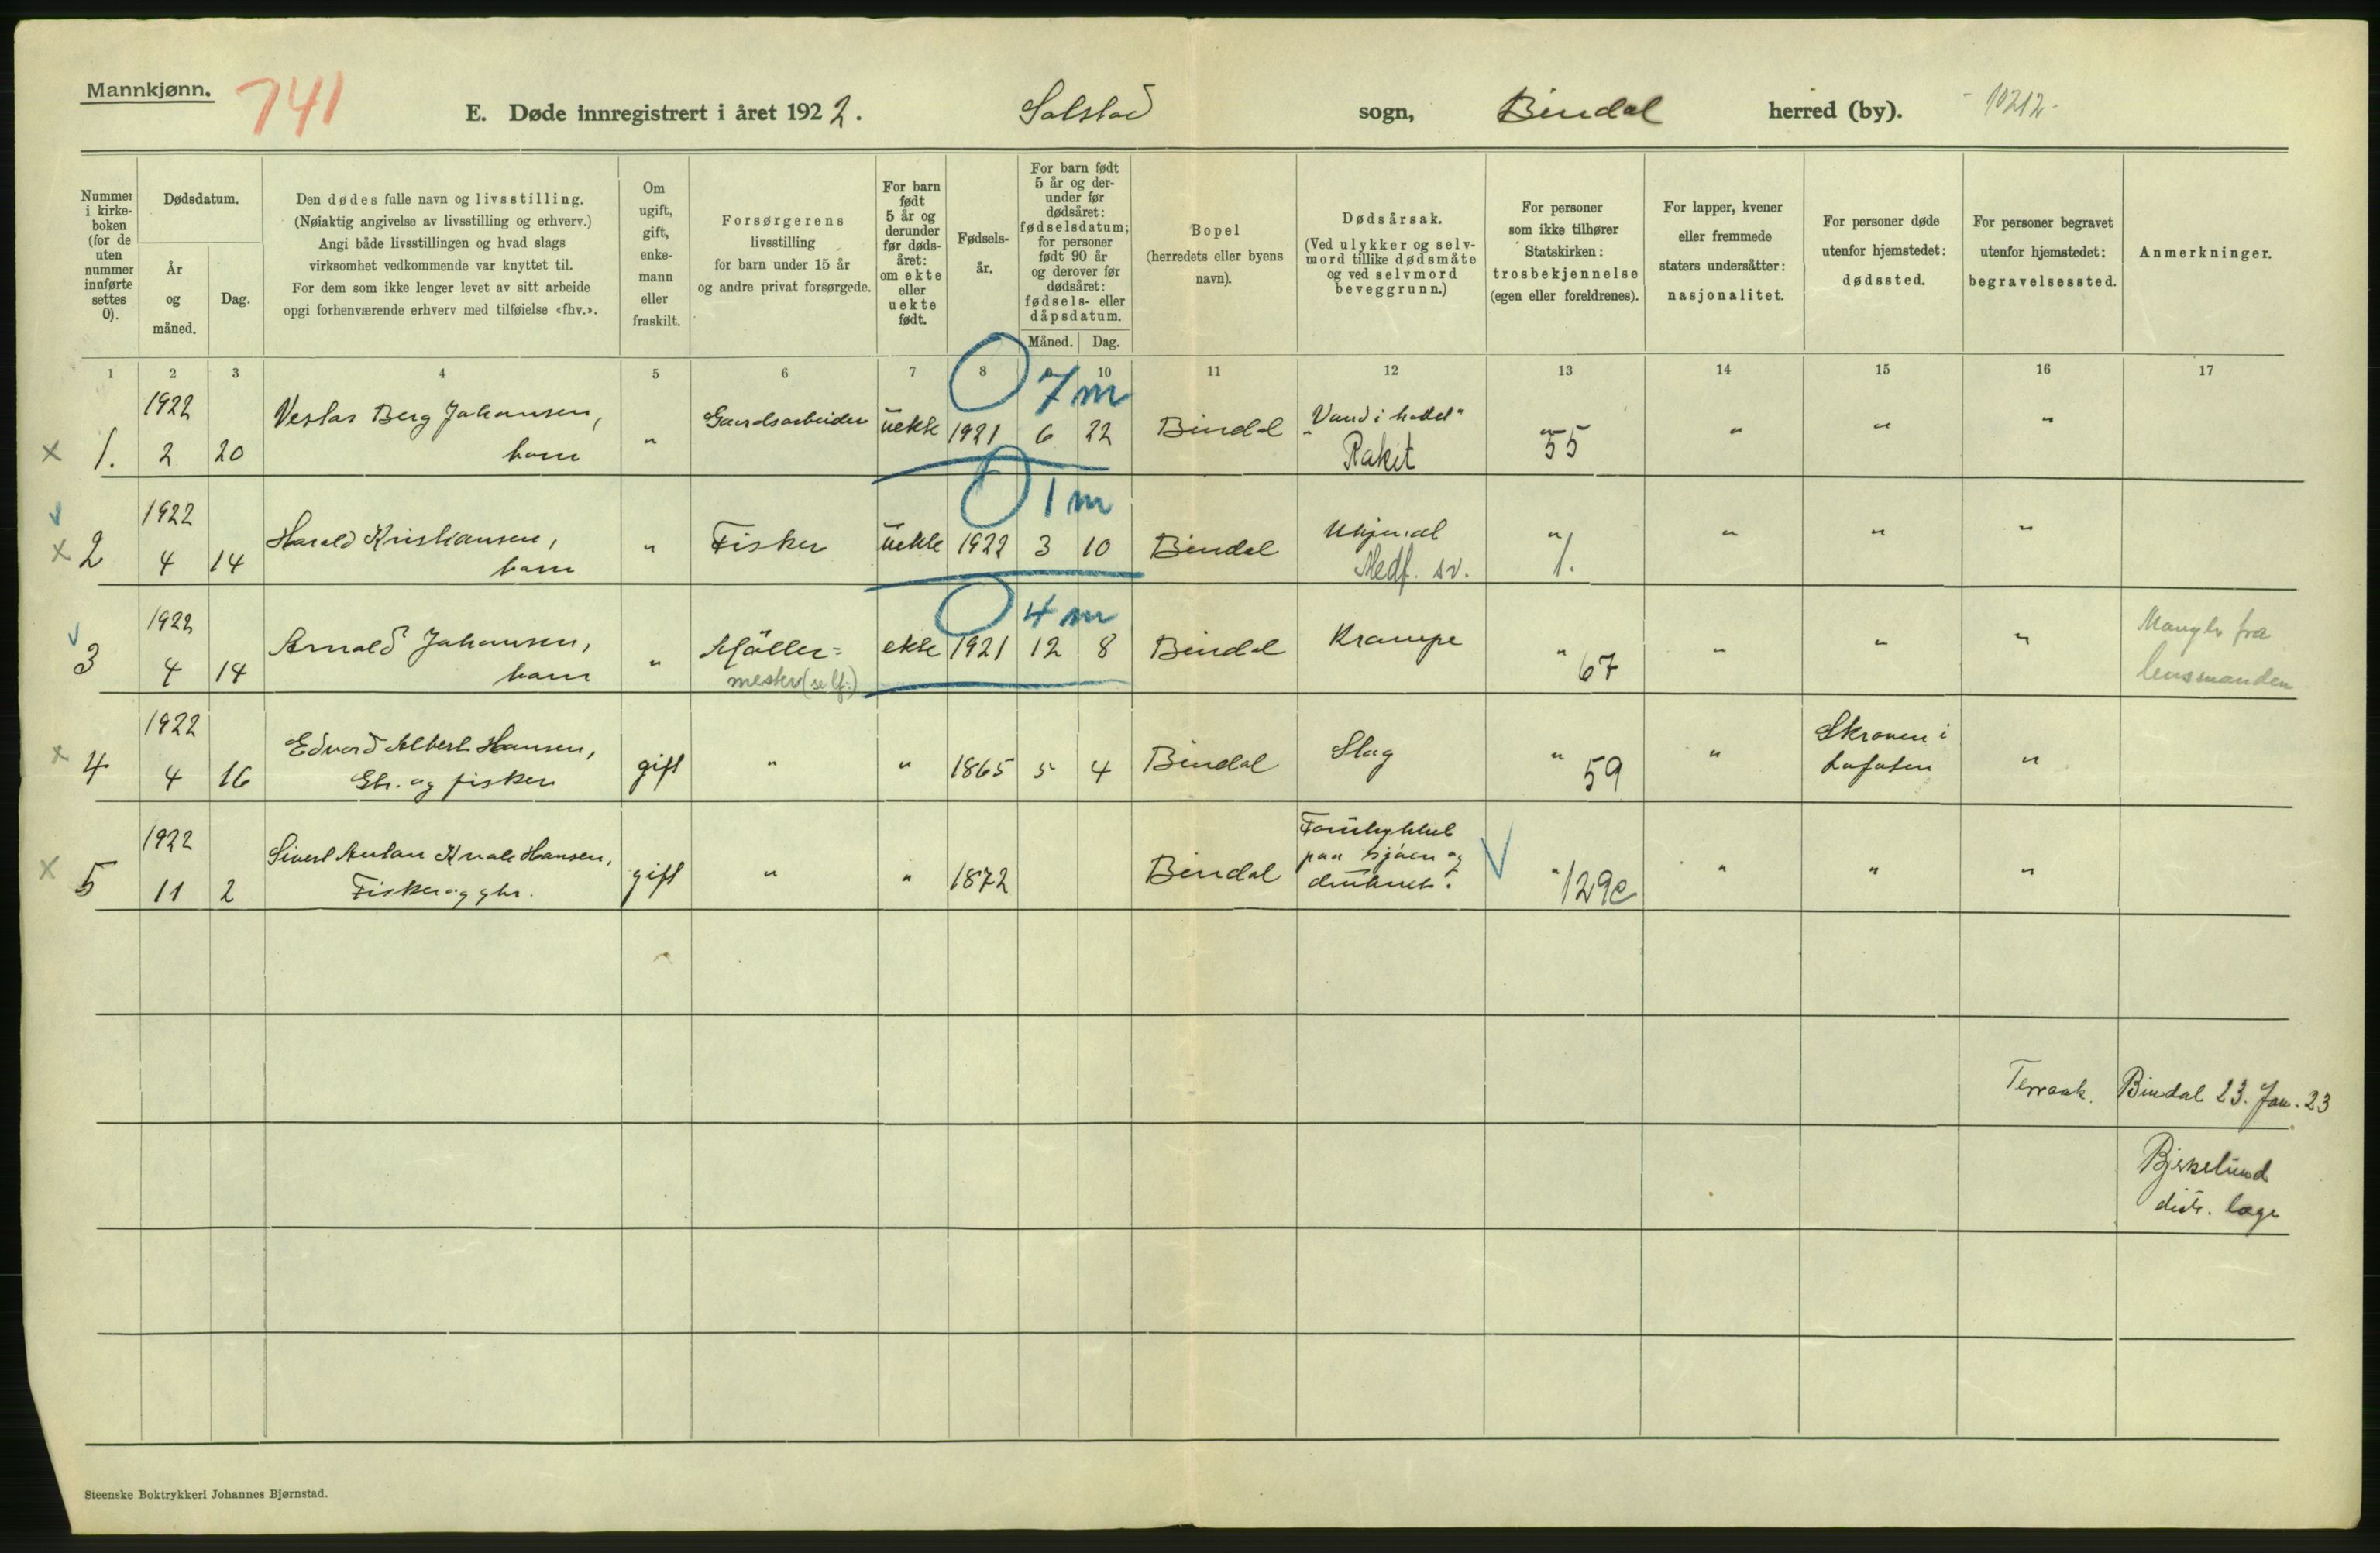 Mannkjønn.
741
E. Døde innregistrert i året 1922. Solstad sogn, Bindal herred (by). 10212.
Nummer i kirke-boken (for de uten nummer innførte settes 0).
Dødsdatum.
År og måned.
Dag.
Den dødes fulle navn og livsstilling.
(Nøiaktig angivelse av livsstilling og erhverv.)
Angi både livsstillingen og hvad slags
virksomhet vedkommende var knyttet til.
For dem som ikke lenger levet av sitt arbeide
opgi forhenværende erhverv med tilføielse «fhv.».
Om ugift, gift, enke-mann eller fraskilt.
Forsørgerens
livsstilling
for barn under 15 år
og andre privat forsørgede.
For barn født 5 år og derunder før døds-året: om ekte eller uekte født.
Fødsels-år.
For barn født 5 år og der-under før dødsåret: fødselsdatum; for personer født 90 år og derover før dødsåret: fødsels- eller dåpsdatum.
Måned. Dag.
Bopel
(herredets eller byens
navn).
Dødsårsak.
(Ved ulykker og selv-
mord tillike dødsmåte
og ved selvmord
beveggrunn.)
For personer
som ikke tilhører
Statskirken:
trosbekjennelse
(egen eller foreldrenes).
For lapper, kvener
eller fremmede
staters undersåtter:
nasjonalitet.
For personer døde
utenfor hjemstedet:
dødssted.
For personer begravet
utenfor hjemstedet:
begravelsessted.
Anmerkninger.
1 2 3 4 5 6 7 8 9 10 11 12 13 14 15 16 17
0 7 m
x 1. 1922 2 20 Vestas Berg Johansen, barn " Gaardsarbeider uekte 1921 6 22 Bindal "Vand i hodet" Rakit " 55 " " "
0 1 m
x 2 1922 4 14 Harald Kristiansen, barn " Fisker uekte 1922 3 10 Bindal Ukjendt Medf. sv. " 1. " " "
0 4 m
3 1922 4 14 Arnold Johansen, barn " Møller=mester (self.) ekte 1921 12 8 Bindal Krampe " 67 " " " Mangler fra lensmanden
x 4 1922 4 16 Edvard Albert Hansen, Gbr. og fisker gift " " 1865 5 4 Bindal Slag " 59 " Skroven i Lofoten "
x 5 1922 11 2 Sivert Anton Hansen, Fisker og gbr. gift " " 1872 Bindal Forulykket paa sjøen og druknet. " 129c " " "
Terraak. Bindal 23. Jan. 23
Bjerkelund
distr. læge
Steenske Boktrykkeri Johannes Bjørnstad.